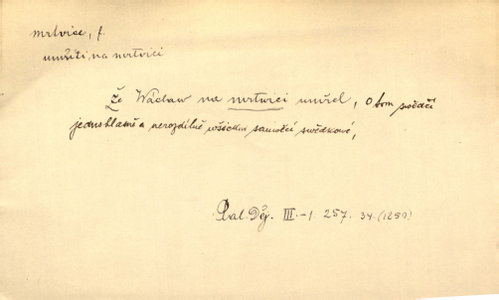 mrtvice, f.
umříti na mrtvici
Že Wácław na mrtwici umřel, o tom swědčí
jednohlasně a nerozdílně wšickni samotčí swědkowé,
Pal. Děj. III-1. 257. 34. (1250)